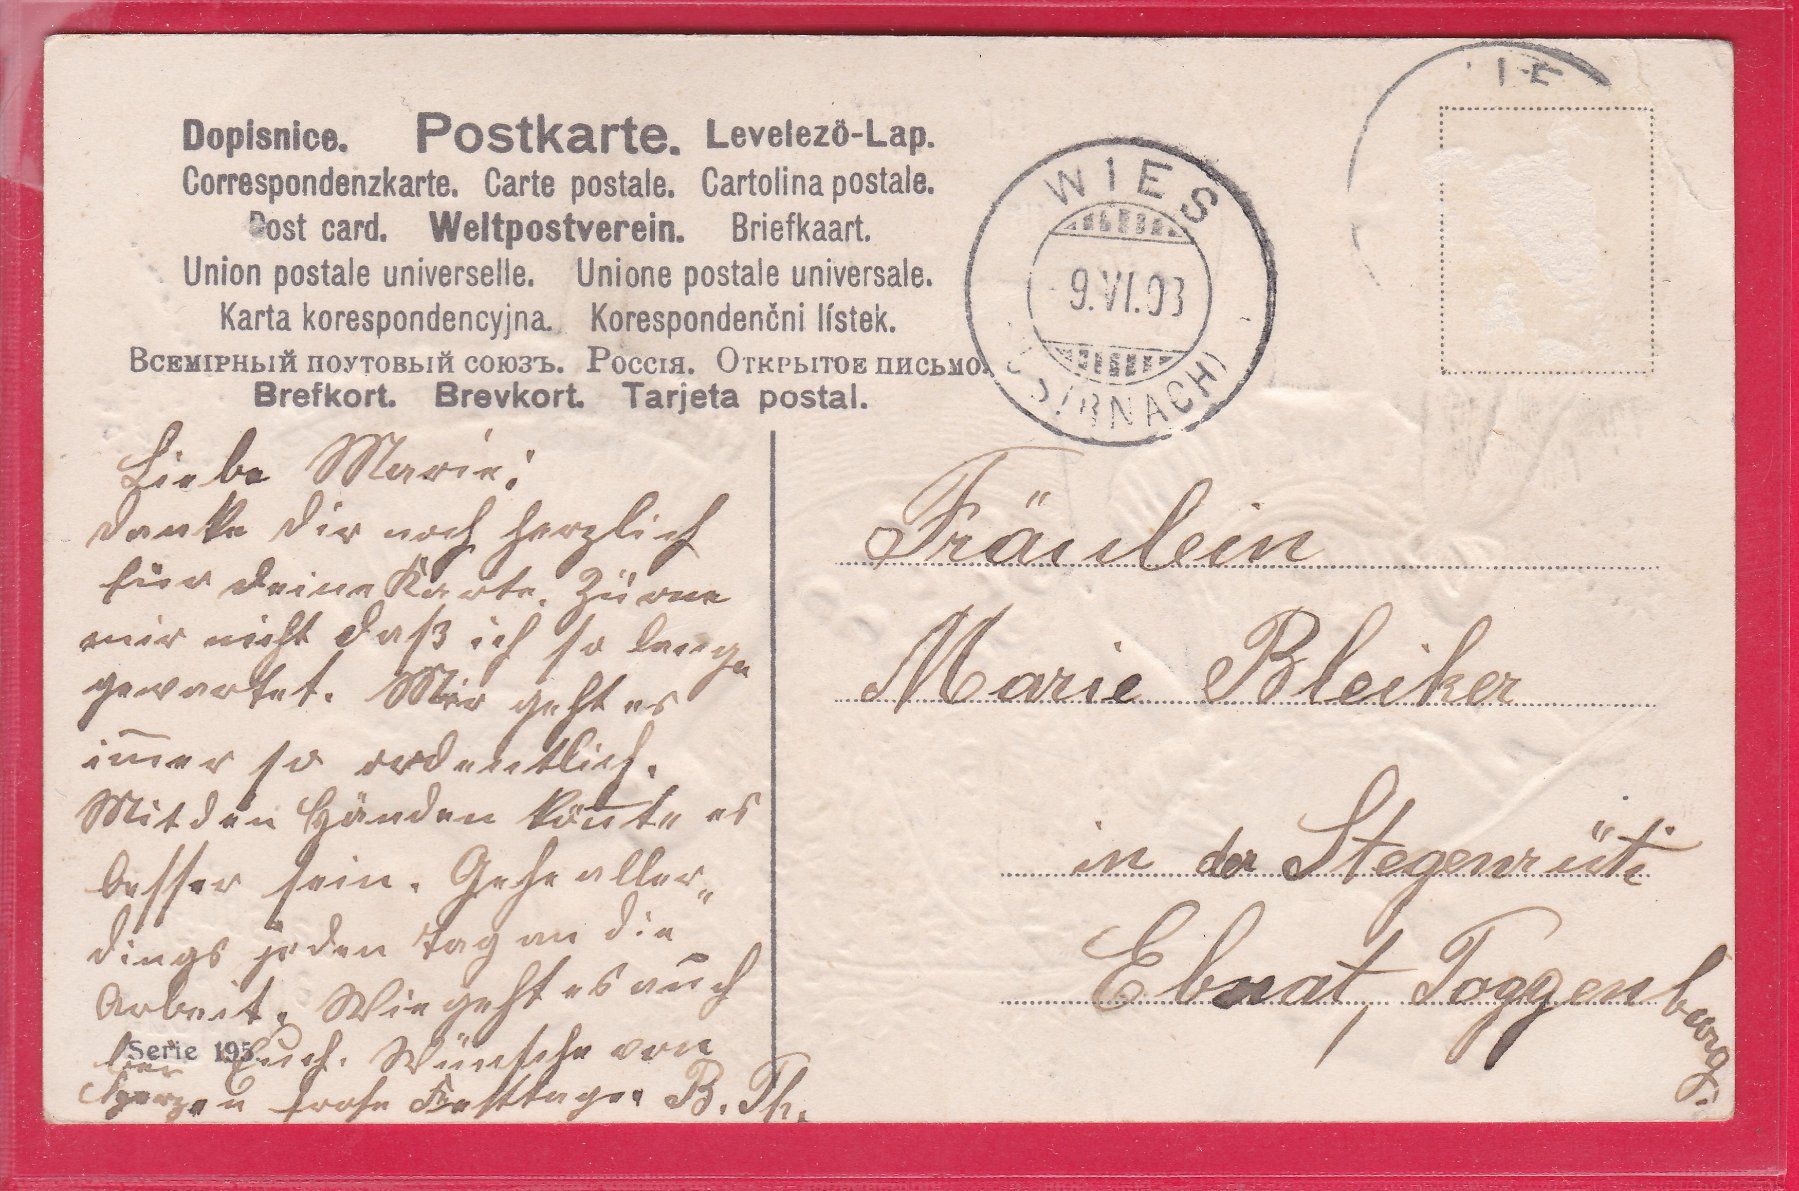 Dopisnice. Postkarte. Levelező-Lap.
Correspondenzkarte. Carte postale. Cartolina postale.
Post card. Weltpostverein. Briefkaart.
Union postale universelle. Unione postale universale.
Karta korespondencyjna. Korespondenčni lístek.
Всемірный поутовый союзъ. Россія. Открытое письмо.
Brefkort. Brevkort. Tarjeta postal.
WIES
9.VI.03
(SIRNACH)
IE
Liebe Marie!
Danke Dir noch herzlich
für deine Karte. Zürne
mir nicht daß ich so lange
gewartet. Mir geht es
im̅er so ordentlich.
Mit den Händen kön̅te es
besser sein. Gehe aller„
dings jeden Tag an die
Arbeit. Wie geht es auch
bei Euch. Wünsche von
Herzen frohe Festtage. B. Th.
Serie 195
Fräulein
Marie Bleiker
in der Stegenrüti
Ebnat, Toggenburg.